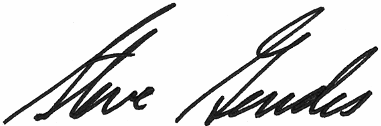 Steve Gendes